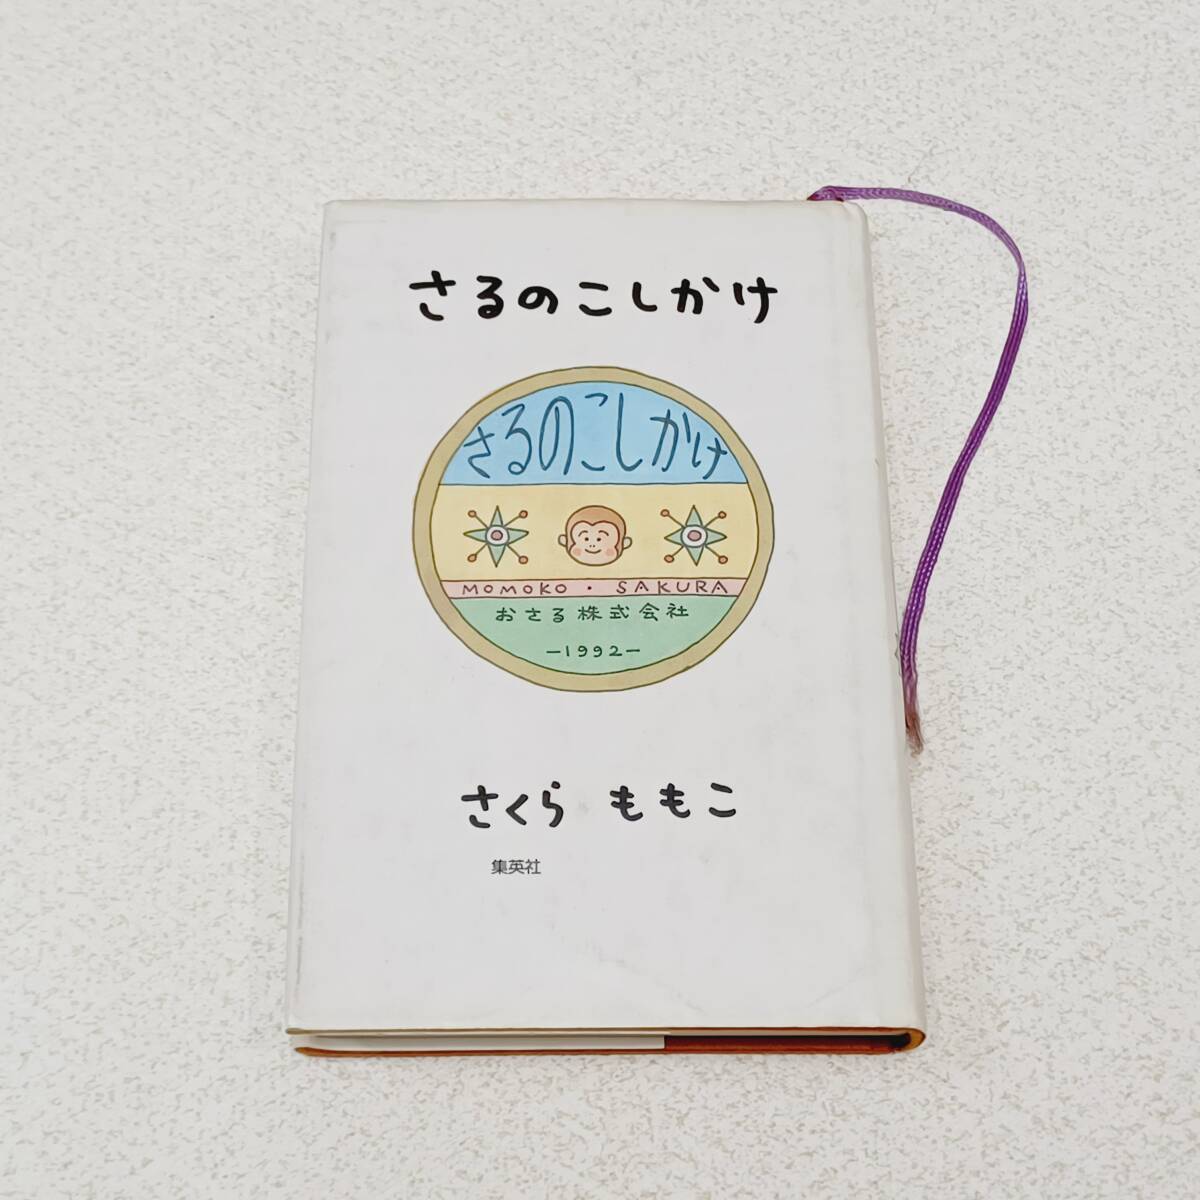 さるのこしかけ
さるのこしかけ
MOMOKO・SAKURA
おさる株式会社
－1992－
さくら ももこ
集英社